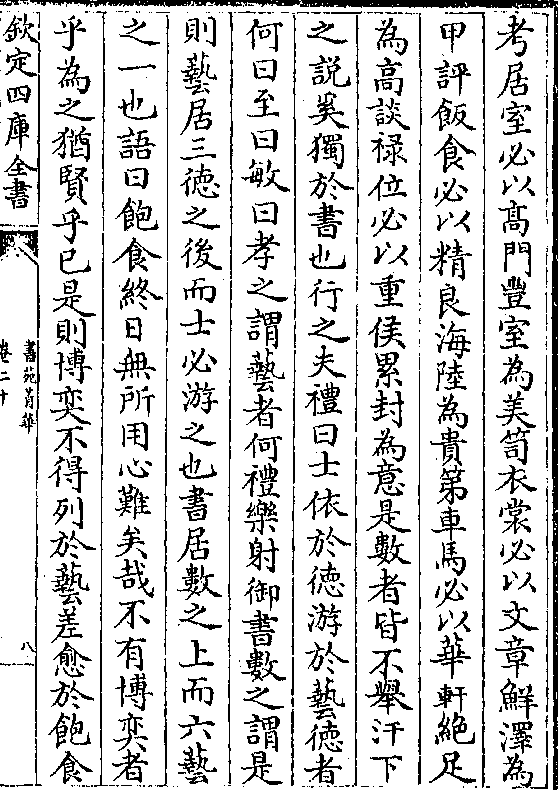 考居室必以髙門豐室為美笥衣裳必以文章鮮澤為
甲評飯食必以精良海陸為貴第車馬必以華軒絶足
為高談禄位必以重侯累封為意是數者皆不舉汗下
之説奚獨於書也行之夫禮曰士依於徳游於藝徳者
何曰至曰敏曰孝之謂藝者何禮樂射御書數之謂是
則藝居三徳之後而士必游之也書居數之上而六藝
之一也語曰飽食終日無所用心難矣哉不有博奕者
乎為之猶賢乎已是則博奕不得列於藝差愈於飽食
欽定四庫全書
書苑菁華
卷二十
八